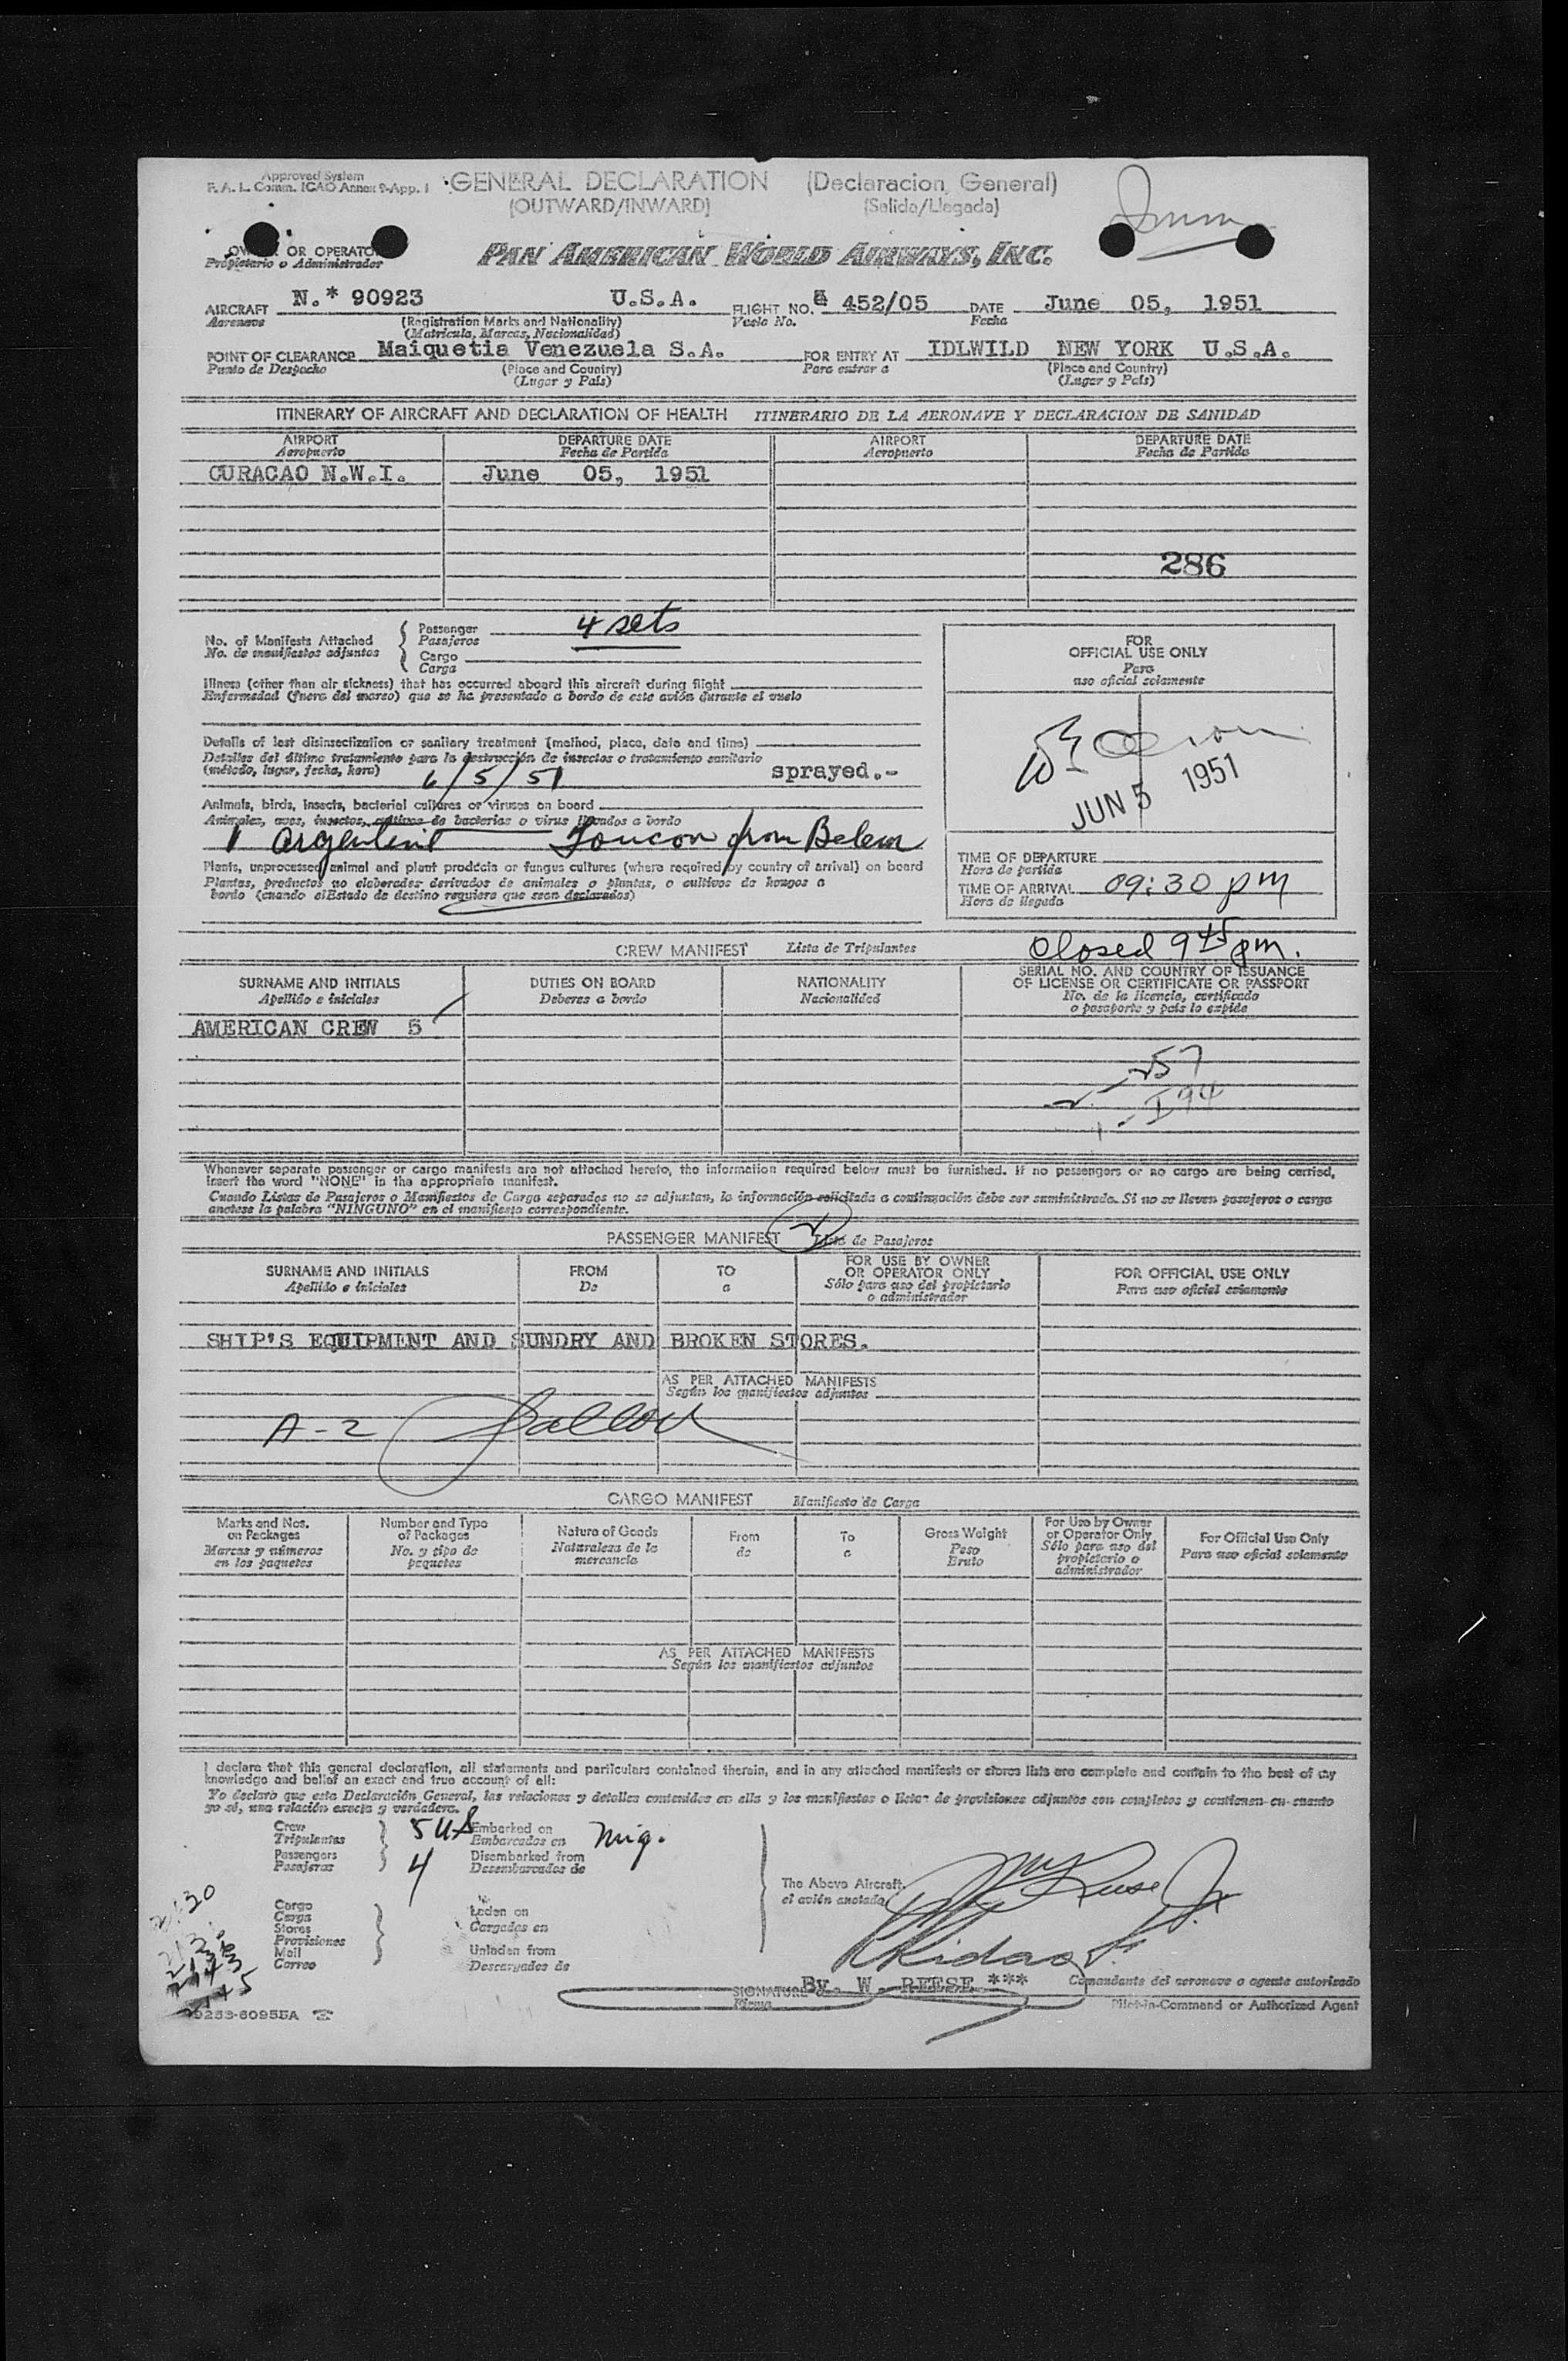 Approved System
F. A. L. Comm. ICAO Annex 9-App. 1
GENERAL DECLARATION (Declaracion General)
(OUTWARD/INWARD) (Salida/Llegada)
OR OPERATOR
Propietario o Administrador
PAN AMERICAN WORLD AIRWAYS, INC.
AIRCRAFT N.* 90923 U.S.A. FLIGHT NO. 452/05 DATE June 05, 1951
Aeronave (Registration Marks and Nationality) Vuelo No. Fecha
(Matricula, Marcas, Nacionalidad)
POINT OF CLEARANCE Maiquetia Venezuela S.A. FOR ENTRY AT IDLWILD NEW YORK U.S.A.
Punto de Despacho (Place and Country) Para entrar a (Place and Country)
(Lugar y País) (Lugar y País)
ITINERARY OF AIRCRAFT AND DECLARATION OF HEALTH ITINERARIO DE LA AERONAVE Y DECLARACION DE SANIDAD
AIRPORT DEPARTURE DATE AIRPORT DEPARTURE DATE
Aeropuerto Fecha de Partida Aeropuerto Fecha de Partida
CURACAO N.W.I. June 05, 1951
286
No. of Manifests Attached Passenger 4 sets
No. de manifiestos adjuntos Pasajeros
Cargo
Carga
Illness (other than air sickness) that has occurred aboard this aircraft during flight
Enfermedad (fuera del mareo) que se ha presentado a bordo de este avión durante el vuelo
Details of last disinsectization or sanitary treatment (method, place, date and time)
Detalles del último tratamiento para la destrucción de insectos o tratamiento sanitario
(método, lugar, fecha, hora) 6/5/51 sprayed.-
Animals, birds, insects, bacterial cultures or viruses on board
Animales, aves, insectos, cultivos de bacterias o virus llevados a bordo
1 Argentine Toucon from Belem
Plants, unprocessed animal and plant products or fungus cultures (where required by country of arrival) on board
Plantas, productos no elaborados derivados de animales o plantas, o cultivos de hongos a
bordo (cuando el Estado de destino requiera que sean declarados)
FOR
OFFICIAL USE ONLY
Para
uso oficial solamente
JUN 5 1951
TIME OF DEPARTURE
Hora de partida
TIME OF ARRIVAL 09:30 pm
Hora de llegada
closed 9 45 pm.
CREW MANIFEST Lista de Tripulantes
SURNAME AND INITIALS DUTIES ON BOARD NATIONALITY SERIAL NO. AND COUNTRY OF ISSUANCE
OF LICENSE OR CERTIFICATE OR PASSPORT
Apellido e iniciales Deberes a bordo Nacionalidad No. de la licencia, certificado
o pasaporte y país lo expide
AMERICAN CREW 5
257
1 - I 94
Whenever separate passenger or cargo manifests are not attached hereto, the information required below must be furnished. If no passengers or no cargo are being carried,
insert the word "NONE" in the appropriate manifest.
Cuando Listas de Pasajeros o Manifiestos de Carga separados no se adjuntan, la información solicitada a continuación debe ser suministrada. Si no se llevan pasajeros o carga
anotese la palabra "NINGUNO" en el manifiesto correspondiente.
PASSENGER MANIFEST Lista de Pasajeros
SURNAME AND INITIALS FROM TO FOR USE BY OWNER
OR OPERATOR ONLY FOR OFFICIAL USE ONLY
Apellido e iniciales De a Sólo para uso del propietario
o administrador Para uso oficial solamente
SHIP'S EQUIPMENT AND SUNDRY AND BROKEN STORES.
AS PER ATTACHED MANIFESTS
Según los manifiestos adjuntos
A-2
CARGO MANIFEST Manifiesto de Carga
Marks and Nos.
on Packages
Marcas y números
en los paquetes
Number and Type
of Packages
No. y tipo de
paquetes
Nature of Goods
Naturaleza de la
mercancia
From
de
To
a
Gross Weight
Peso
Bruto
For Use by Owner
or Operator Only
Sólo para uso del
propietario o
administrador
For Official Use Only
Para uso oficial solamente
AS PER ATTACHED MANIFESTS
Según los manifiestos adjuntos
I declare that this general declaration, all statements and particulars contained therein, and in any attached manifests or stores lists are complete and contain to the best of my
knowledge and belief an exact and true account of all:
Yo declaro que esta Declaración General, las relaciones y detalles contenidos en ella y los manifiestos o listas de provisiones adjuntos son completos y contienen en cuanto
yo sé, una relación exacta y verdadera.
Crew 5 US Embarked on Miq.
Tripulantes Embarcados en
Passengers 4 Disembarked from
Pasajeros Desembarcados de
The Above Aircraft
el avión anotado
Cargo
Carga
Stores
Provisiones
Mail
Correo
Laden on
Cargados en
Unladen from
Descargados de
2130
2143
2145
SIGNATURE By. W. REESE *** Comandante del aeronave o agente autorizado
Firma Pilot-in-Command or Authorized Agent
9253-60955A